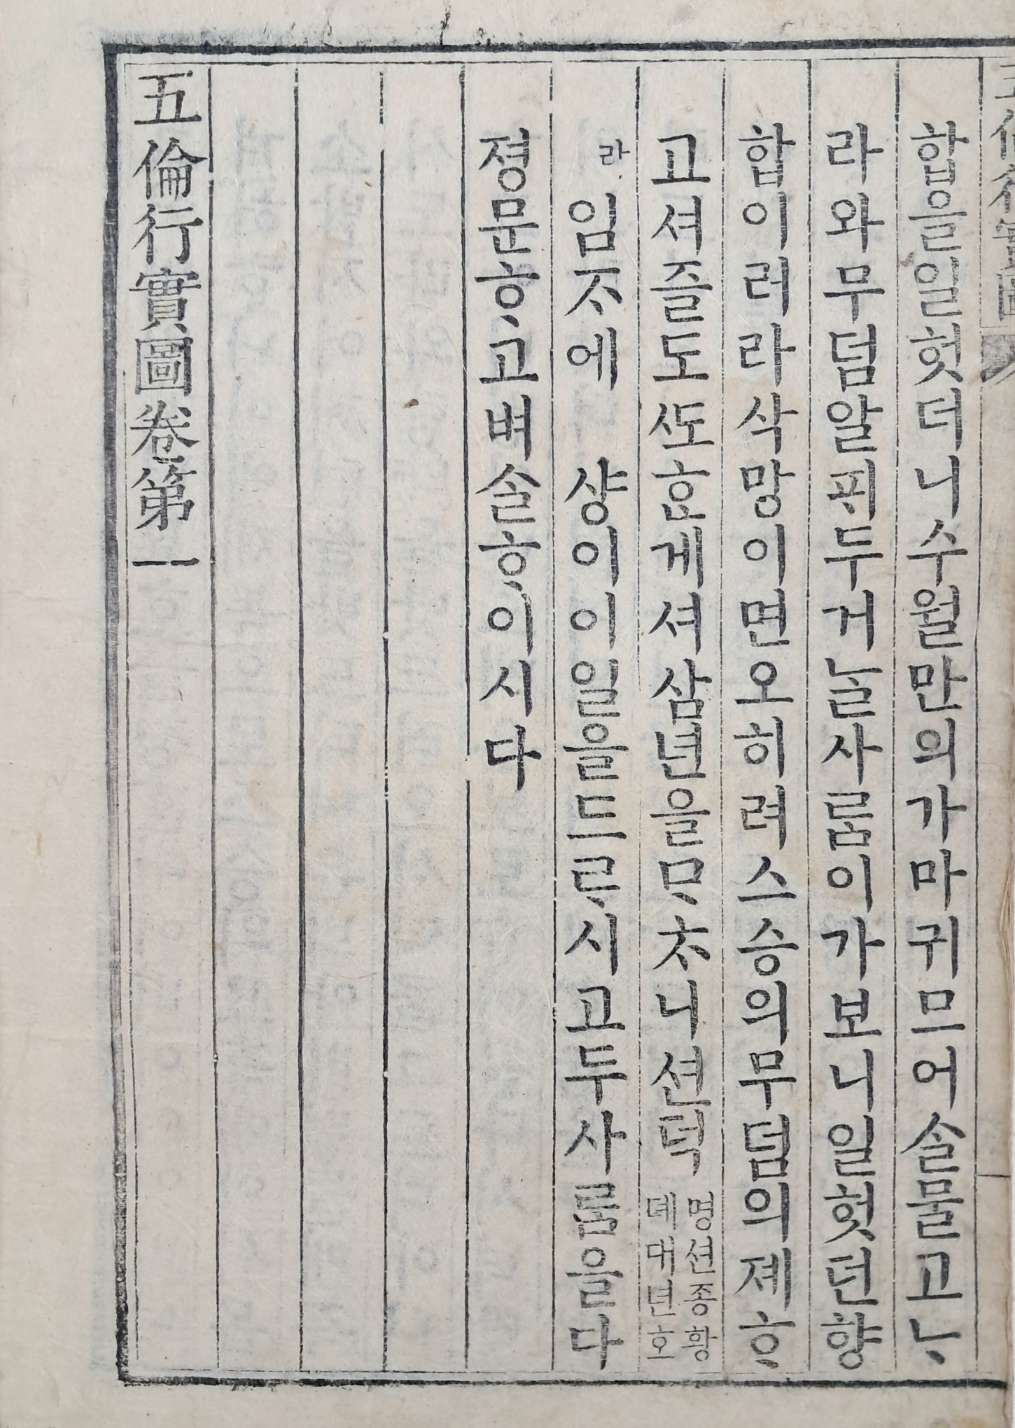 합을일헛더니수월만의가마귀므어슬물고ᄂᆞ
라와무덤알ᄑᆡ두거ᄂᆞᆯ사ᄅᆞᆷ이가보니일헛던향
합이러라삭망이면오히려스승의무덤의졔ᄒᆞ
고셔즐도ᄯᅩᄒᆞᆫ게셔삼년을ᄆᆞᄎᆞ니션덕명션종황뎨대년호
라임ᄌᆞ에 샹이이일을드ᄅᆞ시고두사ᄅᆞᆷ을다
졍문ᄒᆞ고벼슬ᄒᆞ이시다
五倫行實圖卷第一